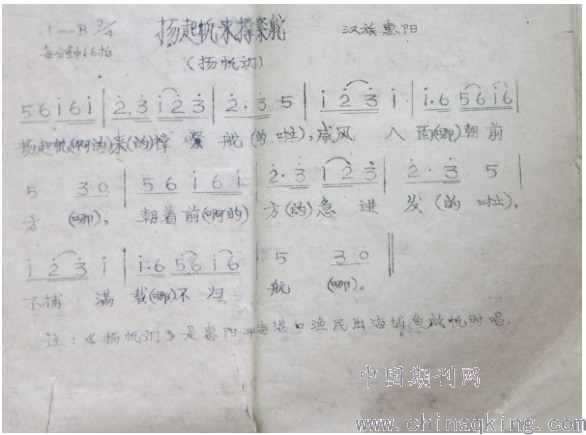 1=B 2/4 扬起帆来撑条舵 汉族惠阳
每分钟66拍 (扬帆訪)
5 6 i 6 i | 2. 3 i 2 3 | 2. 3 5 | i 2 3 i | i. 6 5 6 i 6 |
扬起帆(啊的)来(的)撑 条 舵 (的 啦), 威风 人 面(哪)朝前
5 3 0 | 5 6 i 6 i | 2. 3 i 2 3 | 2. 3 5 |
方 (哪), 朝着前(啊的) 方(的)急 进 发 (的 啦),
i 2 3 i | i. 6 5 6 i 6 | 5 3 0 ||
不捕 满 载(哪)不 归 航 (哪)。
注:《扬帆訪》是惠阳 海港口渔民出海捕鱼放帆时唱.
中国期刊网
www.chinaqking.com